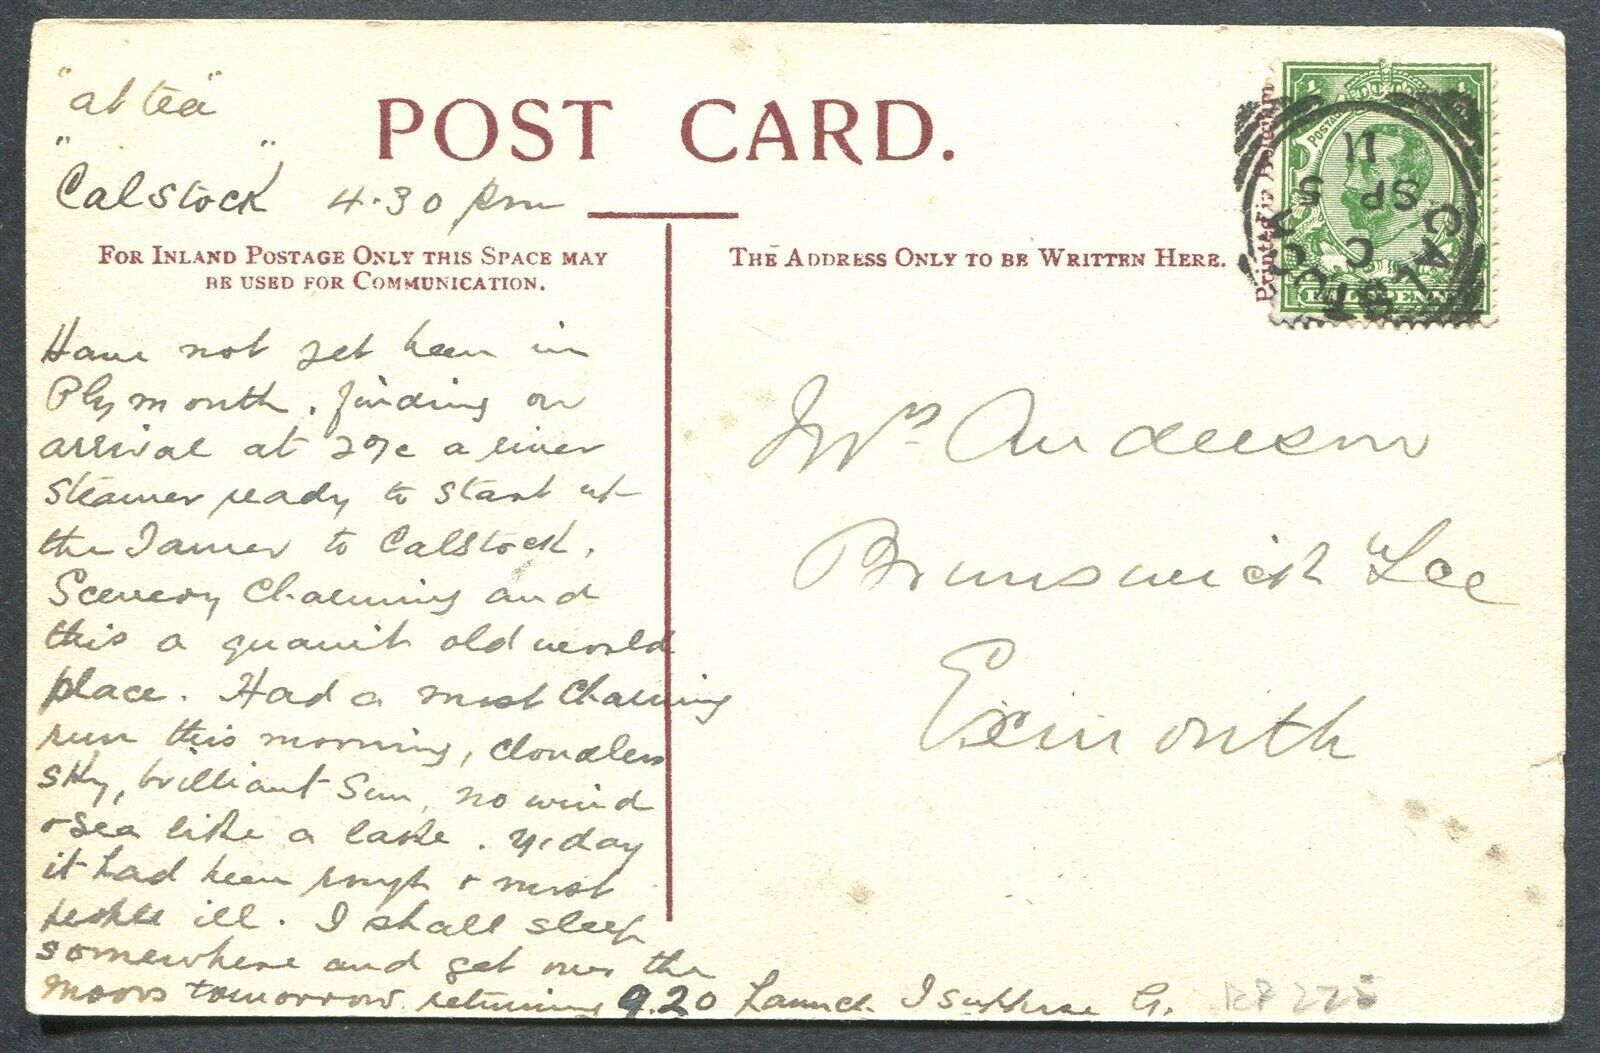 "at tea"
POST CARD.
"Calstock" 4.30 pm
FOR INLAND POSTAGE ONLY THIS SPACE MAY
BE USED FOR COMMUNICATION.
Have not yet been in
Plymouth, finding on
arrival at a river
steamer ready to start up
the Tamer to Calstock.
Scenery Charming and
this a quaint old world
place. Had a most Charming
run this morning, cloudless
sky, brilliant Sun, no wind
& sea like a lake. Y'day
it had been rough & most
people ill. I shall sleep
somewhere and get over the
moors tomorrow returning 9.20 Launch I suppose G.
THE ADDRESS ONLY TO BE WRITTEN HERE.
Printed in Belgium
POSTAGE
HALFPENNY
CALSTOCK
C
SP 5
11
Mrs Anderson
Brunswick Lee
Exmouth
RP 225